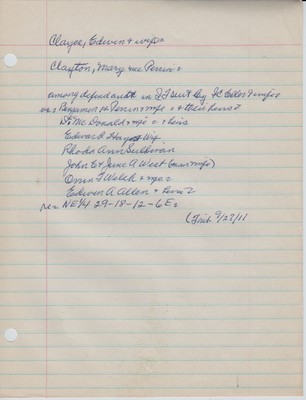 Clayee, Edwin & wife
Clayton, Mary nee Perrin
among defendants in suit by
vs Benjamin H. Perrin & wife & their heirs
D. McDonald & wife & heirs
Edward Hays & wife
Rhoda Ann Sullivan
John E & Jane A West (man & wife)
Orrin T Welch & wife
Edwin A Allen & heirs
re NE¼ 29-18-12-6E
(Trib. 9/23/11